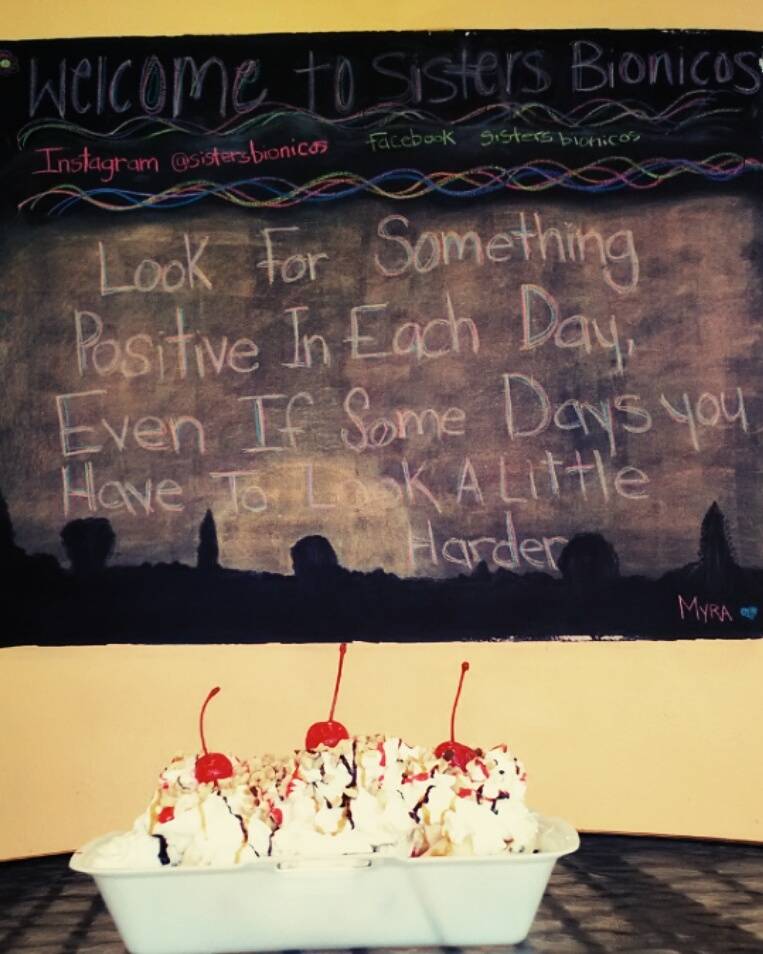 Welcome to Sisters Bionicos
Instagram @sistersbionicos Facebook sistersbionicos
Look For Something
Positive In Each Day,
Even If Some Days you
Have To Look A Little
Harder
MYRA